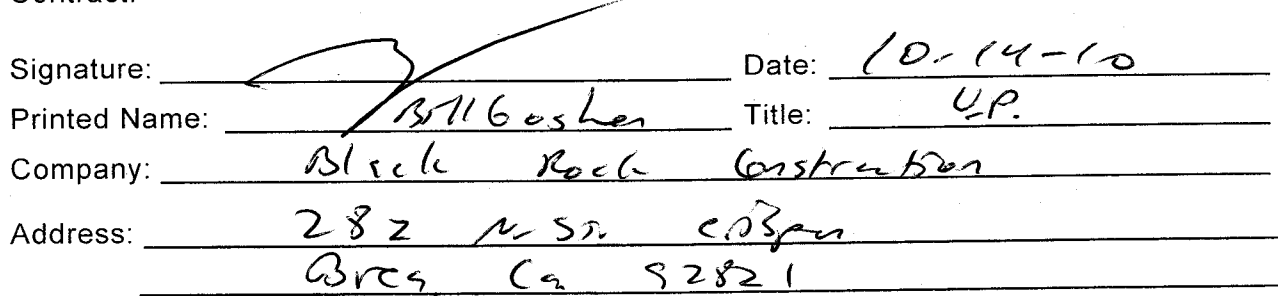 Signature: Date: 10-14-10
Printed Name: Bill Goshen Title: V.P.
Company: Black Rock Construction
Address: 282 N.
Brea Ca 92821